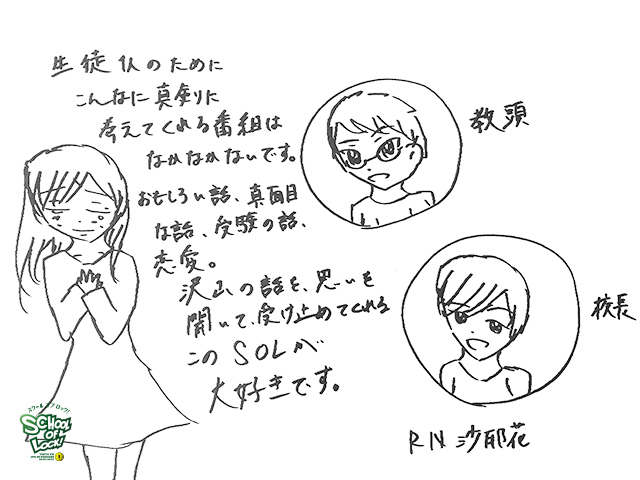 生徒1人のために
こんなに真剣に
考えてくれる番組は
なかなかないです。
おもしろい話、真面目
な話、受験の話、
恋愛。
沢山の話を、思いを
聞いて、受け止めてくれる
このSOLが
大好きです。
教頭
校長
RN 沙耶花
スクールオブロック!
SCHOOL
OF
LOCK!